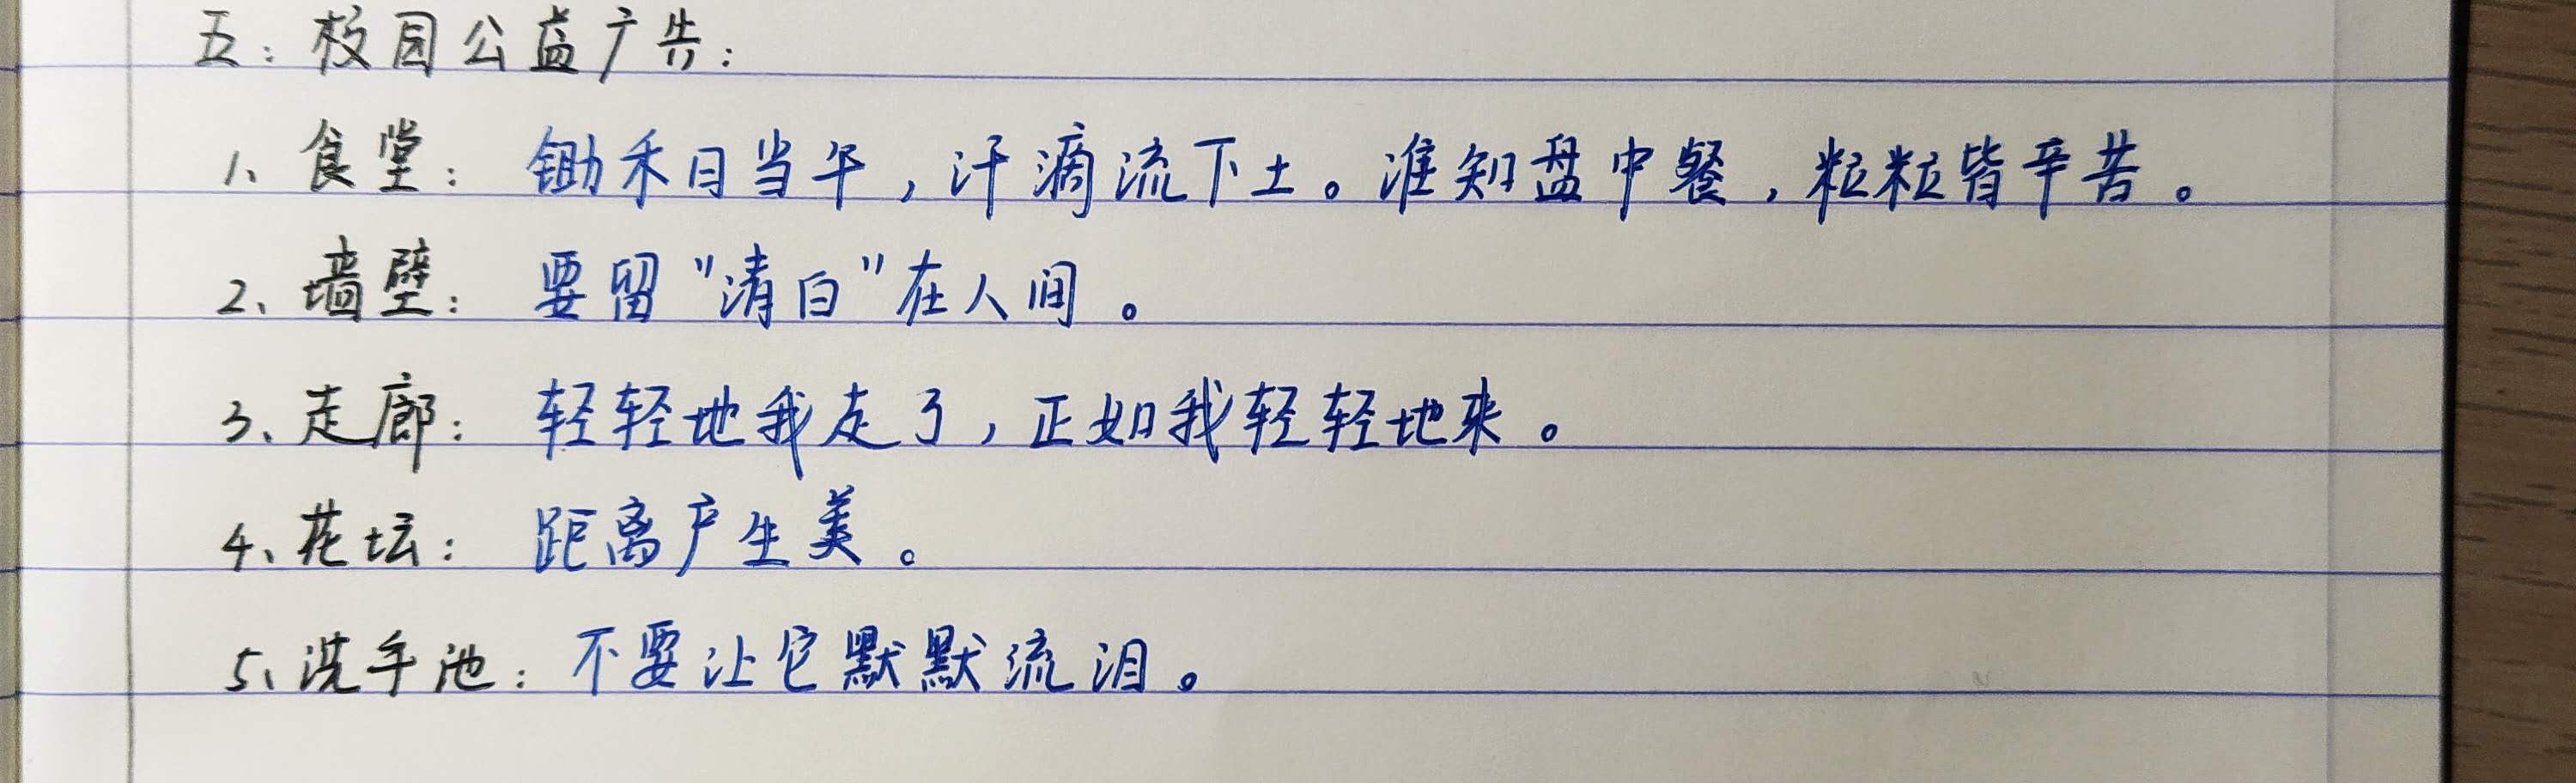 五:校园公益广告:
1、食堂:锄禾日当午,汗滴流下土。准知盘中餐,粒粒皆辛苦。
2、墙壁:要留"清白"在人间。
3、走廊:轻轻地我走了,正如我轻轻地来。
4、花坛:距离产生美。
5、洗手池:不要让它默默流泪。